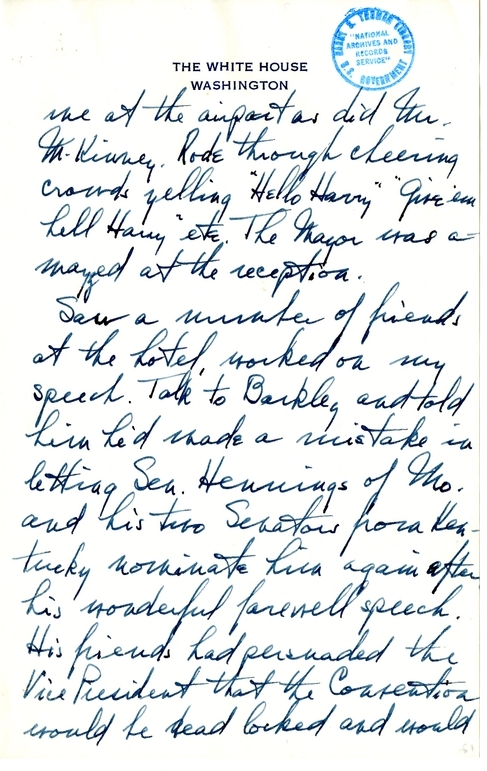 THE WHITE HOUSE
WASHINGTON
HARRY S. TRUMAN LIBRARY
"NATIONAL
ARCHIVES AND
RECORDS
SERVICE"
U.S. GOVERNMENT
me at the airport as did Mr.
McKinney. Rode through cheering
crowds yelling "Hello Harry" "Give 'em
hell Harry" etc. The Mayor was a-
mazed at the reception.
Saw a number of friends
at the hotel, worked on my
speech. Talk to Barkley and told
him he'd made a mistake in
letting Sen. Hennings of Mo.
and his two Senators from Ken-
tucky nominate him again after
his wonderful farewell speech.
His friends had persuaded the
Vice President that the Convention
would be dead locked and would